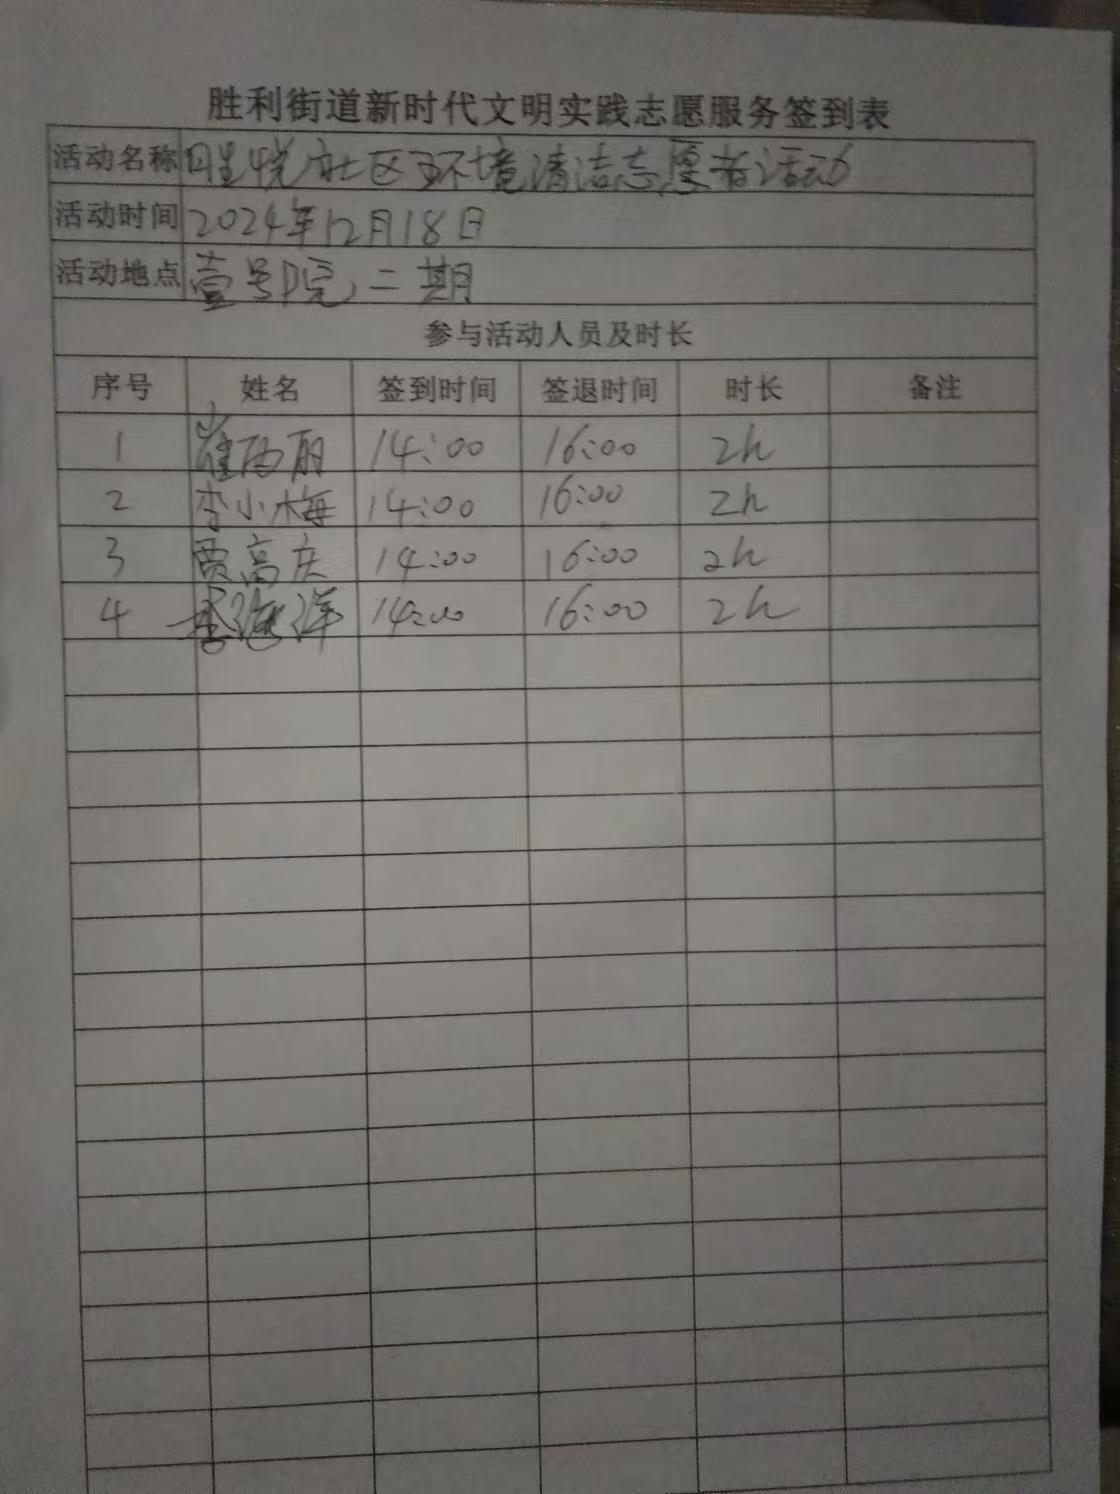 胜利街道新时代文明实践志愿服务签到表
活动名称 悦社区环境清洁志愿者活动
活动时间 2024年12月18日
活动地点 壹号院二期
参与活动人员及时长
序号 姓名 签到时间 签退时间 时长 备注
1 崔丽 14:00 16:00 2h
2 李小梅 14:00 16:00 2h
3 贾高庆 14:00 16:00 2h
4 李海洋 14:00 16:00 2h